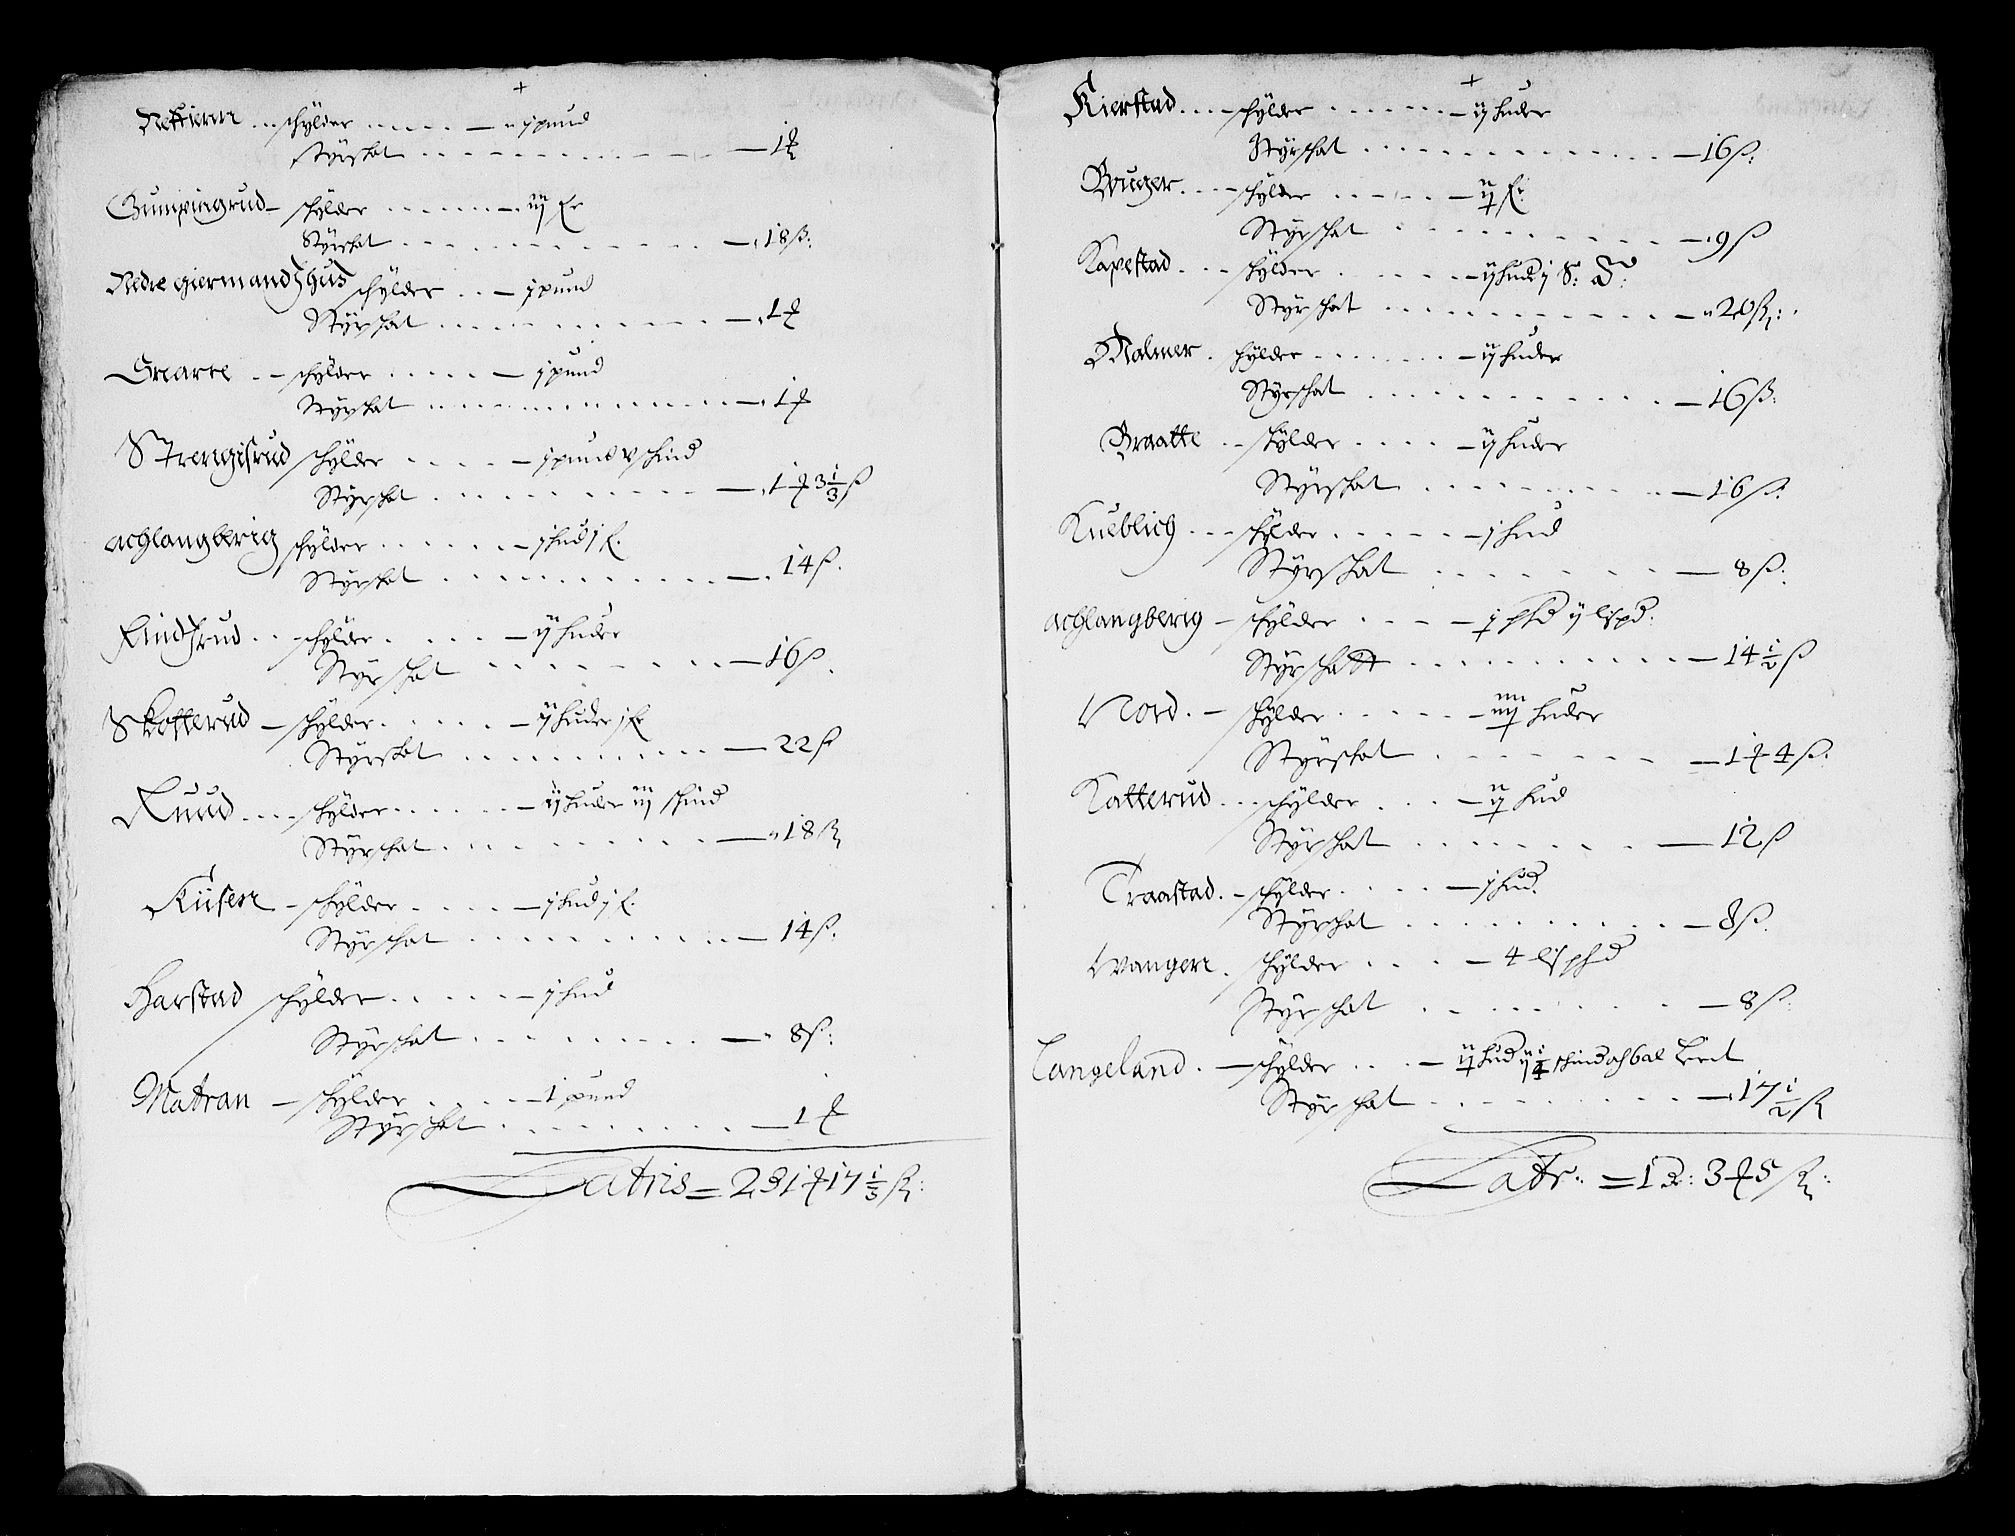 Nettienn .. schylder ..... j pund
Styrschat ........ 1
Gumpingrud schylder ...... iij fr
Styrschat ........ 18 ß:
Nedre giermandzhus schylder .. j pund
Styrschat ........ 1
Snarre .. schylder ..... j pund
Styrschat ........ 1
Strengisrud schylder .... j pund v schind
Styrschat ........ 1 3 1/3 ß
achlangberig schylder ...... j hud j f.
Styrschat ........ 14 ß.
Lindtrud .. schylder .... ij huder
Styrschat ........ 16 ß.
Skotterud schylder ..... ij huder j f
Styrschat ........ 22 ß
Ruud .... schylder ..... ij huder iij schind
Styrschat ........ 18 ß
Kiisen schylder .... j hud j f.
Styrschat ........ 14 ß:
Harstad schylder ..... j hud
Styrschat ........ 8 ß:
Matran schylder ..... 1 pund
Styrschat ........ 1
Latris = 23 17 1/3 ß:
Kierstad ... schylder ...... ij huder
Styrschat ........ 16 ß:
Bruger ... schylder ..... f:
Styrschat ........ 9 ß
Kapestad ... schylder ...... ij hud j
Styrschat ........ 20 ß:
Malmer . schylder ....... ij huder
Styrschat ........ 16 ß:
Braatte .. schylder .... ij huder
Styrschat ........ 16 ß:
Kueblich ... schylder ..... j hud
Styrschat ........ 8 ß:
achlangberig schylder .... ij lispd:
Styrschatt ........ 14 1/2 ß
Nord . schylder ..... huder
Styrschat ........ 1 4 ß:
Katterud ... schylder .... hud
Styrschat ........ 12 ß
Traastad . schylder .... j hud.
Styrschat ........ 8 ß.
Wangen . schylder .... 4 lisphd
Styrschat ........ 8 ß:
Langeland . schylder ... hud schind
Styrschat ........ 17 1/2 ß
Latr: = 1 : 3 5 ß: